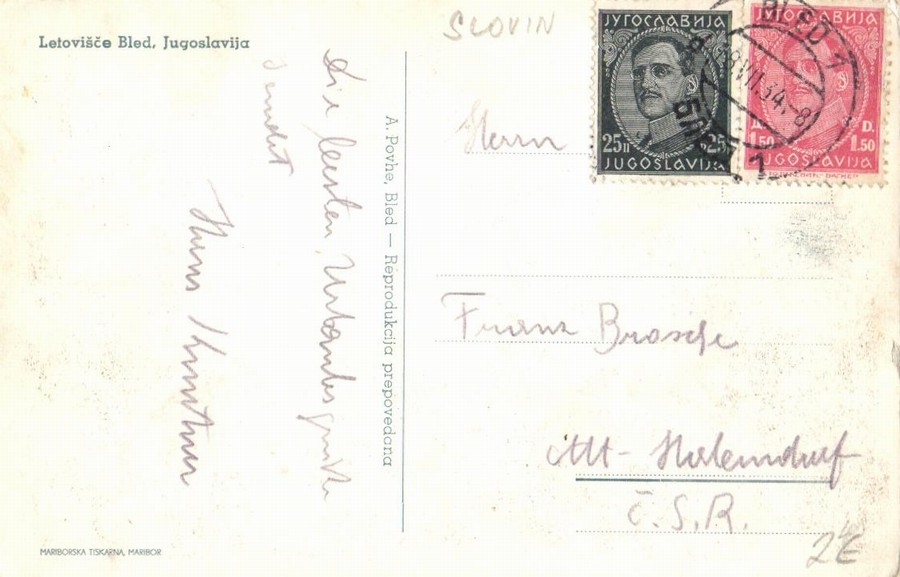 Letovišče Bled, Jugoslavija
SLOVIN
ЈУГОСЛАВИЈА
25п 25
JUGOSLAVIJA
ЈУГОСЛАВИЈА
Д. D.
1.50 1.50
JUGOSLAVIJA
BLED 1
VII.34.-8
БЛЕД 1
Die besten Urlaubsgrüße
sendet
Hans
A. Povhe, Bled — Reprodukcija prepovedana
Herrn
Franz Brosche
Alt-
Č.S.R.
2€
MARIBORSKA TISKARNA, MARIBOR